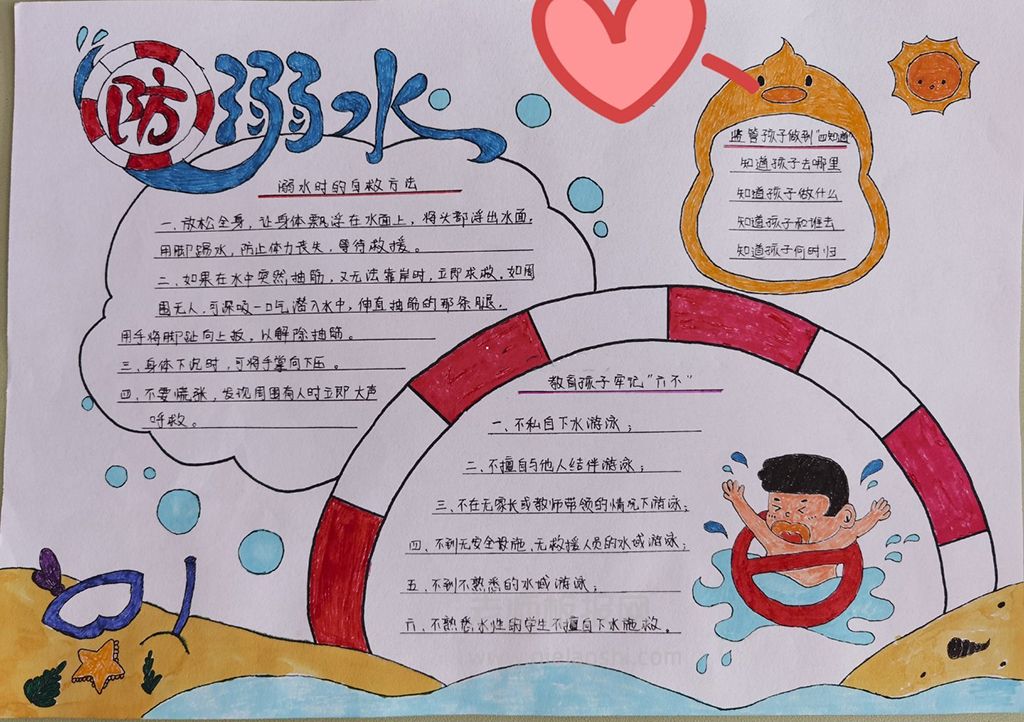 防溺水
溺水时的自救方法
一、放松全身，让身体飘浮在水面上，将头部浮出水面，
用脚踢水，防止体力丧失，等待救援。
二、如果在水中突然抽筋，又无法靠岸时，立即求救。如周
围无人，可深吸一口气潜入水中，伸直抽筋的那条腿，
用手将脚趾向上扳，以解除抽筋。
三、身体下沉时，可将手掌向下压。
四、不要慌张，发现周围有人时立即大声
呼救。
监管孩子做到"四知道"
知道孩子去哪里
知道孩子做什么
知道孩子和谁去
知道孩子何时归
教育孩子牢记"六不"
一、不私自下水游泳；
二、不擅自与他人结伴游泳；
三、不在无家长或教师带领的情况下游泳；
四、不到无安全设施、无救援人员的水域游泳；
五、不到不熟悉的水域游泳；
六、不熟悉水性的学生不擅自下水施救。